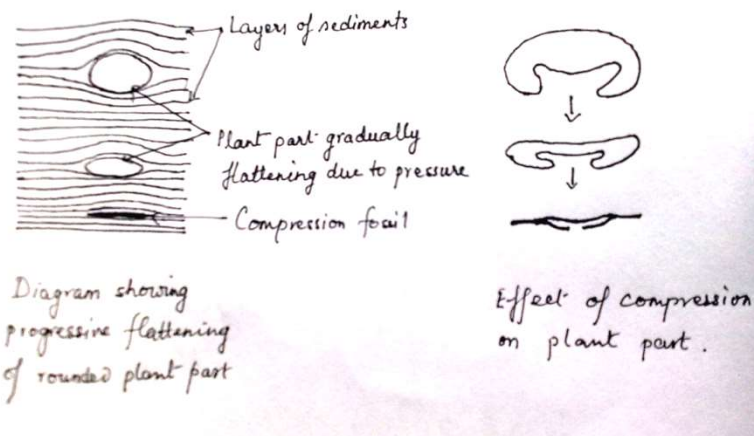 Layers of sediments
Plant part gradually
flattening due to pressure
Compression fossil
Diagram showing
progressive flattening
of rounded plant part
Effect of compression
on plant part.